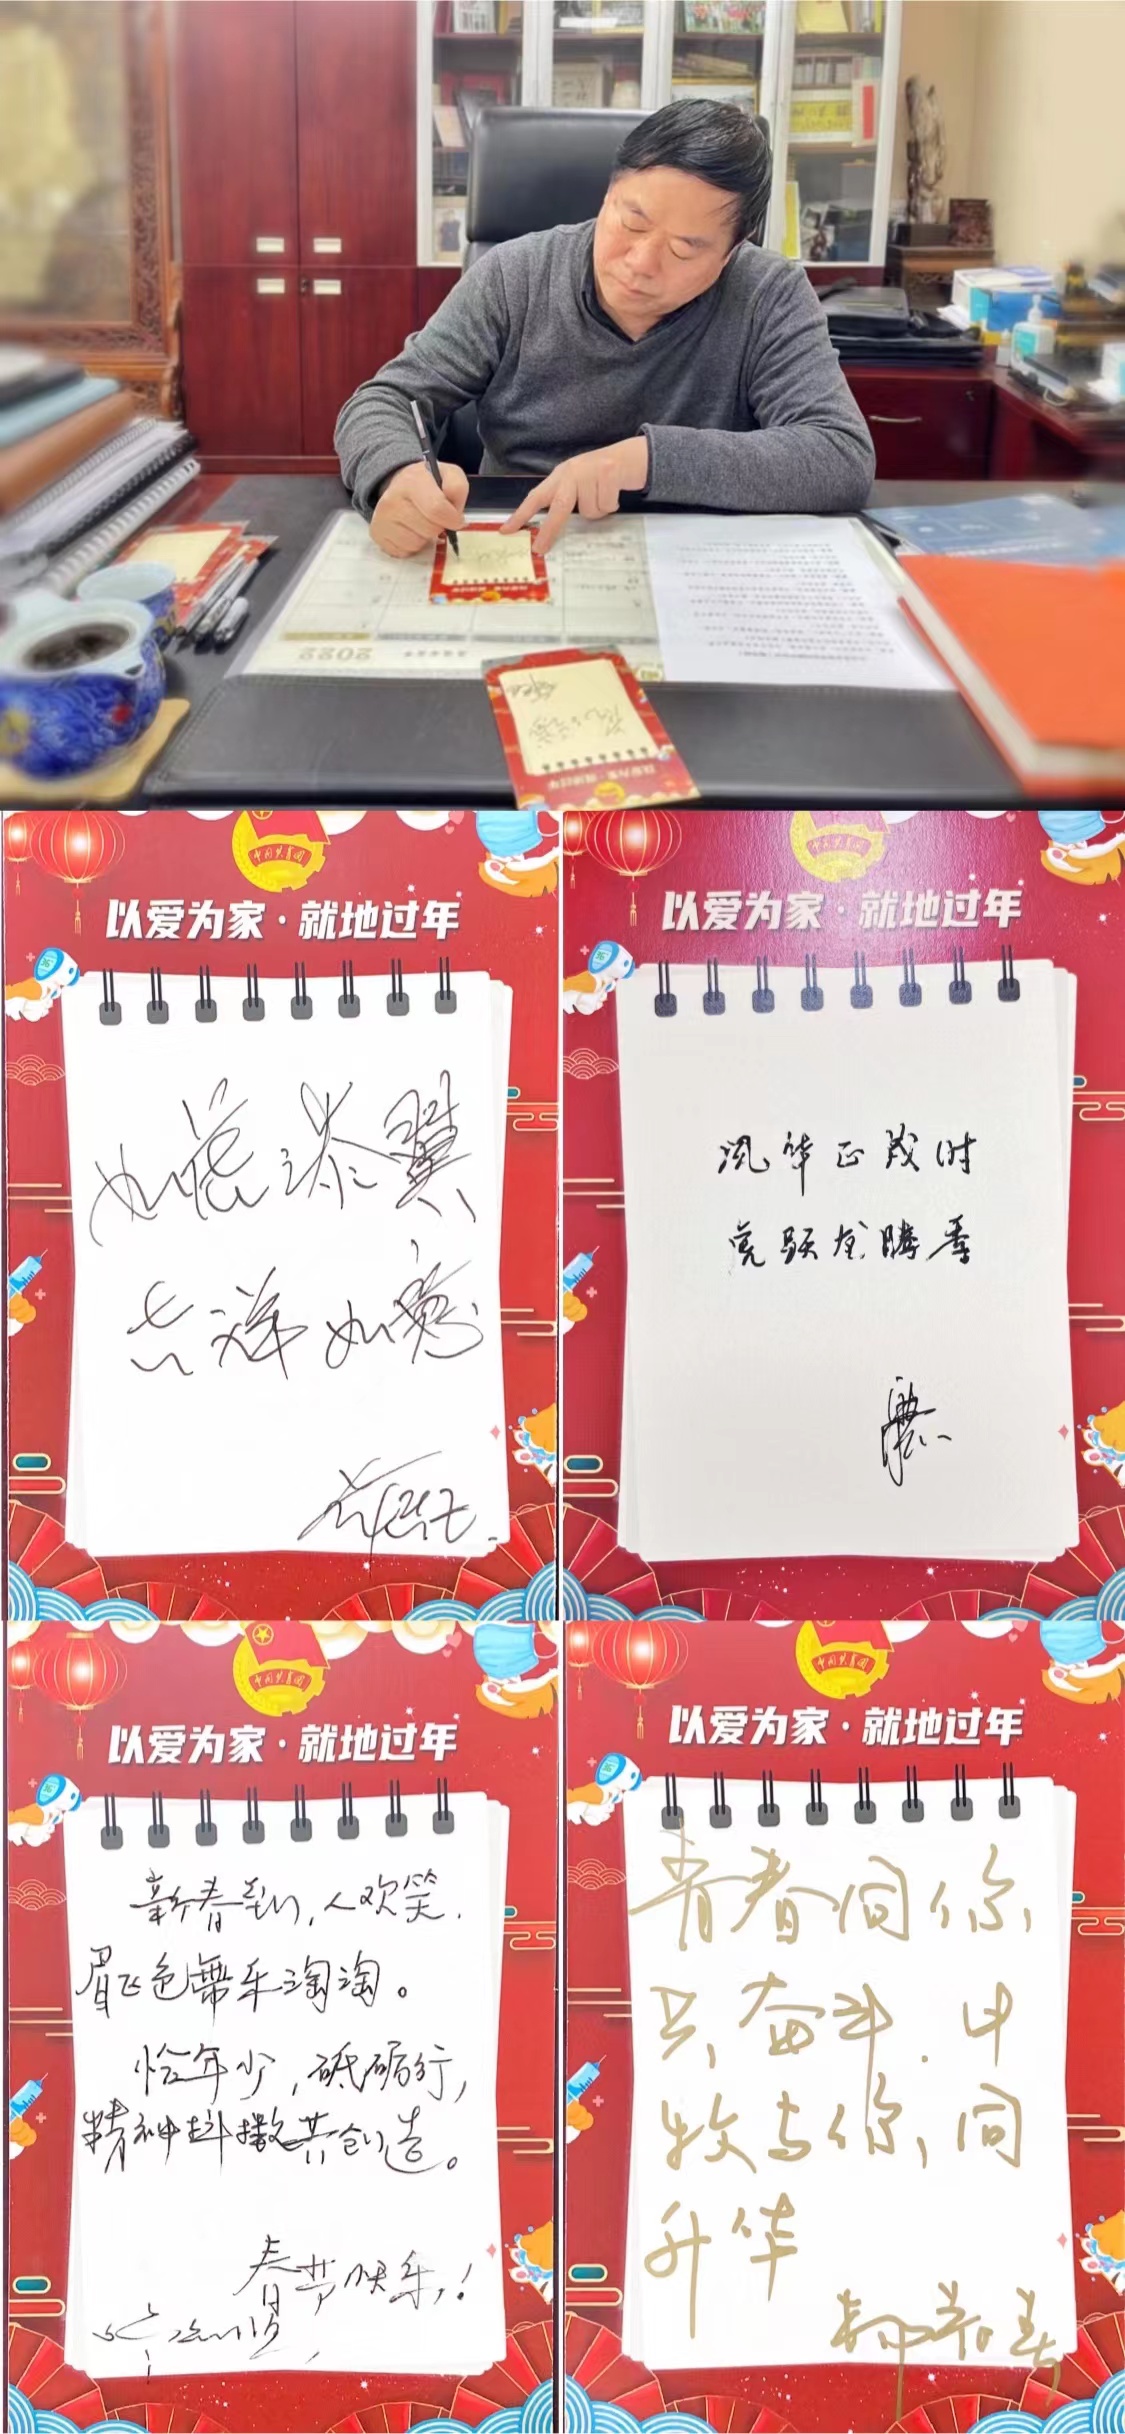 2022
以爱为家·就地过年
中国共青团
以爱为家·就地过年
如虎添翼
吉祥如意
中国共青团
以爱为家·就地过年
风华正茂时
虎跃龙腾季
中国共青团
以爱为家·就地过年
新春到，人欢笑，
眉飞色舞乐淘淘。
恰年少，砥砺行，
精神抖擞共创造。
春节快乐！
中国共青团
以爱为家·就地过年
青春同你，
共奋斗．中
牧与你，同
升华